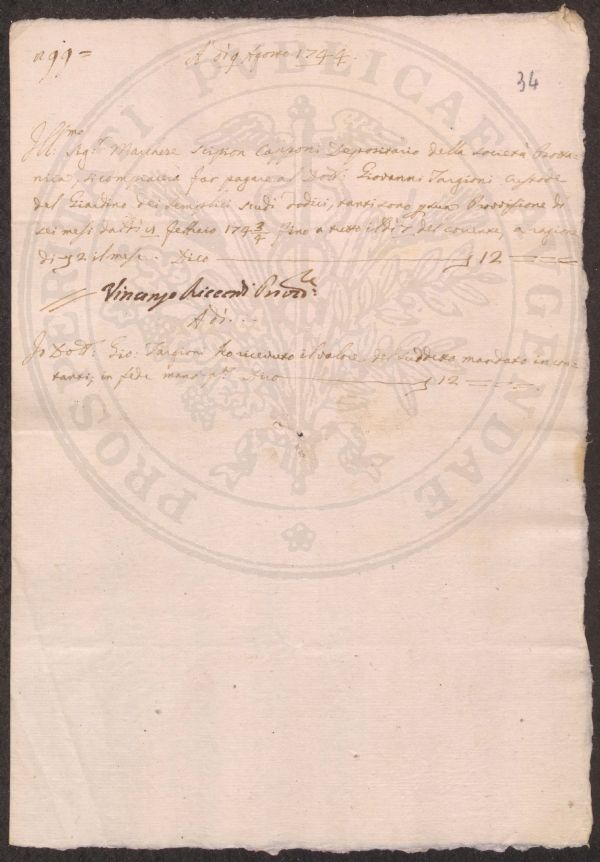 n 99 =
A dì 9 Agosto 1744.
34
Ill.mo Sig.r Marchese Scipion Capponi Depositario della Società Botta=
nica, si compiaccia far pagare al Dott: Giovanni Targioni Custode
del Giardino dei Semplici scudi dodici, tanti sono p sua Provvisione di
sei mesi dal dì febbraio 174 3/4 fino a tutto il dì 7 del corrente, a ragione
di 2 il mese. Dico 12 = = =
Vincenzo Riccardi Provv.re
A dì . . .
Io Dott: Gio: Targioni ho ricevuto il valore del suddetto mandato in con=
tanti, in fede mano pp.a Dico 12 = = = .
PROSPERITATI PVBLICAE AVGENDAE